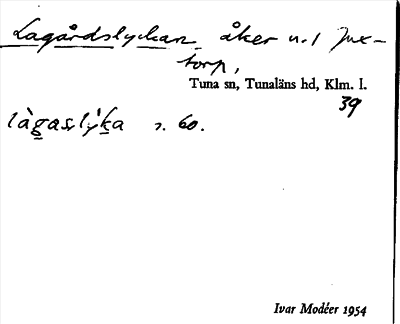 Lagårdslyckan, åker n. 1 Jux-
torp,
Tuna sn, Tunaläns hd, Klm. l.
39
làgaslyka s. 60.
Ivar Modéer 1954